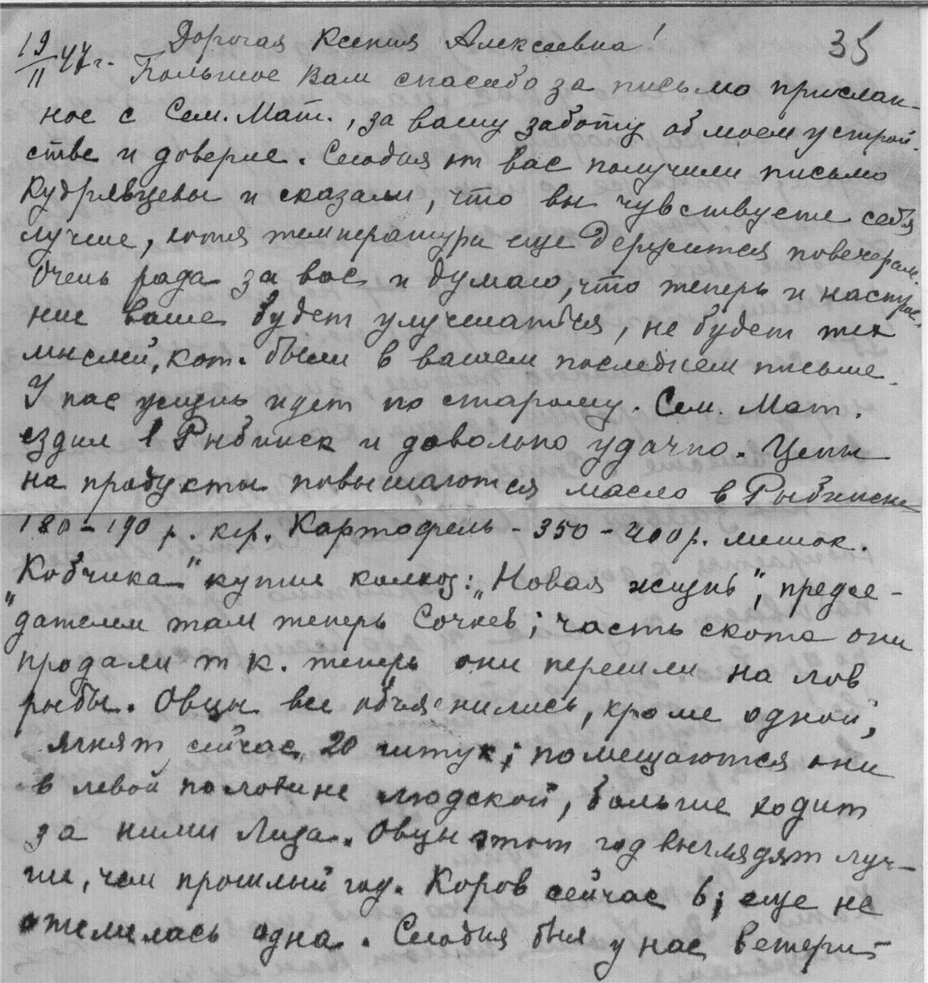 Дорогая Ксения Алексеевна! 35
19/II 47 г. Большое Вам спасибо за письмо прислан-
ное с Сем. Мат., за вашу заботу об моем устрой-
стве и доверие. Сегодня от вас получили письмо
Кудрявцевы и сказали, что вы чувствуете себя
лучше, хотя температура еще держится повечерам.
Очень рада за вас и думаю, что теперь и настрое-
ние ваше будет улучшаться, не будет тех
мыслей, кот. были в вашем последнем письме.
У нас жизнь идет по старому. Сем. Мат.
ездил в Рыбинск и довольно удачно. Цены
на продукты повышаются масло в Рыбинске
180-190 р. кгр. Картофель - 350-400 р. мешок.
"Кобчика" купил колхоз: "Новая жизнь", предсе-
дателем там теперь Сочнев; часть скота они
продали т к. теперь они перешли на лов
рыбы. Овцы все объягнились, кроме одной,
ягнят сейчас 20 штук; помещаются они
в левой половине людской, больше ходит
за ними Лиза. Овцы этот год выглядят луч-
ше, чем прошлый год. Коров сейчас 6; еще не
отелилась одна. Сегодня был у нас ветери-